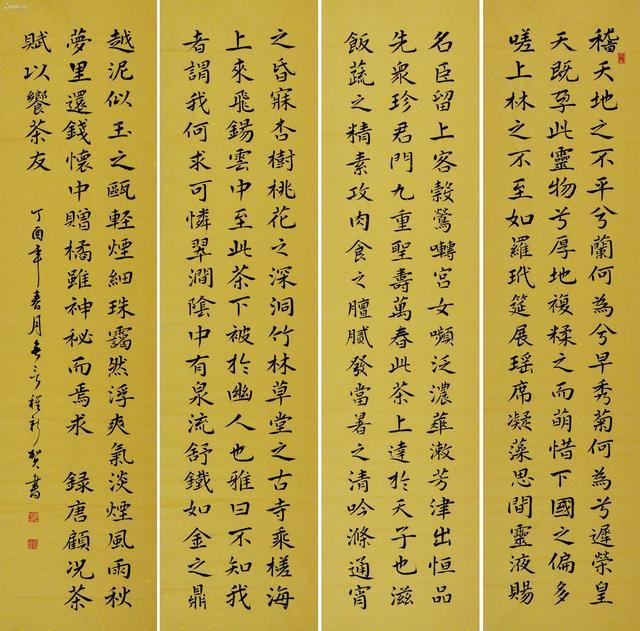 稽天地之不平兮蘭何為兮早秀菊何為兮遲榮皇
天既孕此靈物兮厚地複糅之而萌惜下國之偏多
嗟上林之不至如羅玳筵展瑤席凝藻思間靈液賜
名臣留上客穀鶯囀宮女嚬泛濃華漱芳津出恒品
先衆珍君門九重聖壽萬春此茶上達於天子也滋
飯蔬之精素攻肉食之膻膩發當暑之清吟滌通宵
之昏寐杏樹桃花之深洞竹林草堂之古寺乘槎海
上來飛錫雲中至此茶下被於幽人也雅曰不知我
者謂我何求可憐翠澗陰中有泉流舒鐵如金之鼎
越泥似玉之甌輕煙細珠靄然浮爽氣淡煙風雨秋
夢里還錢懷中贈橘雖神秘而焉求 録唐顧況茶
賦以饗茶友
丁酉年春月 書